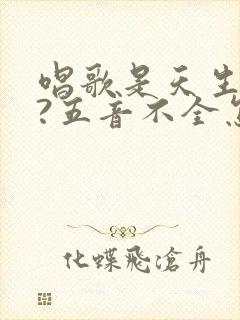 唱歌是天生
?五音不全怎
化蝶飛滄舟